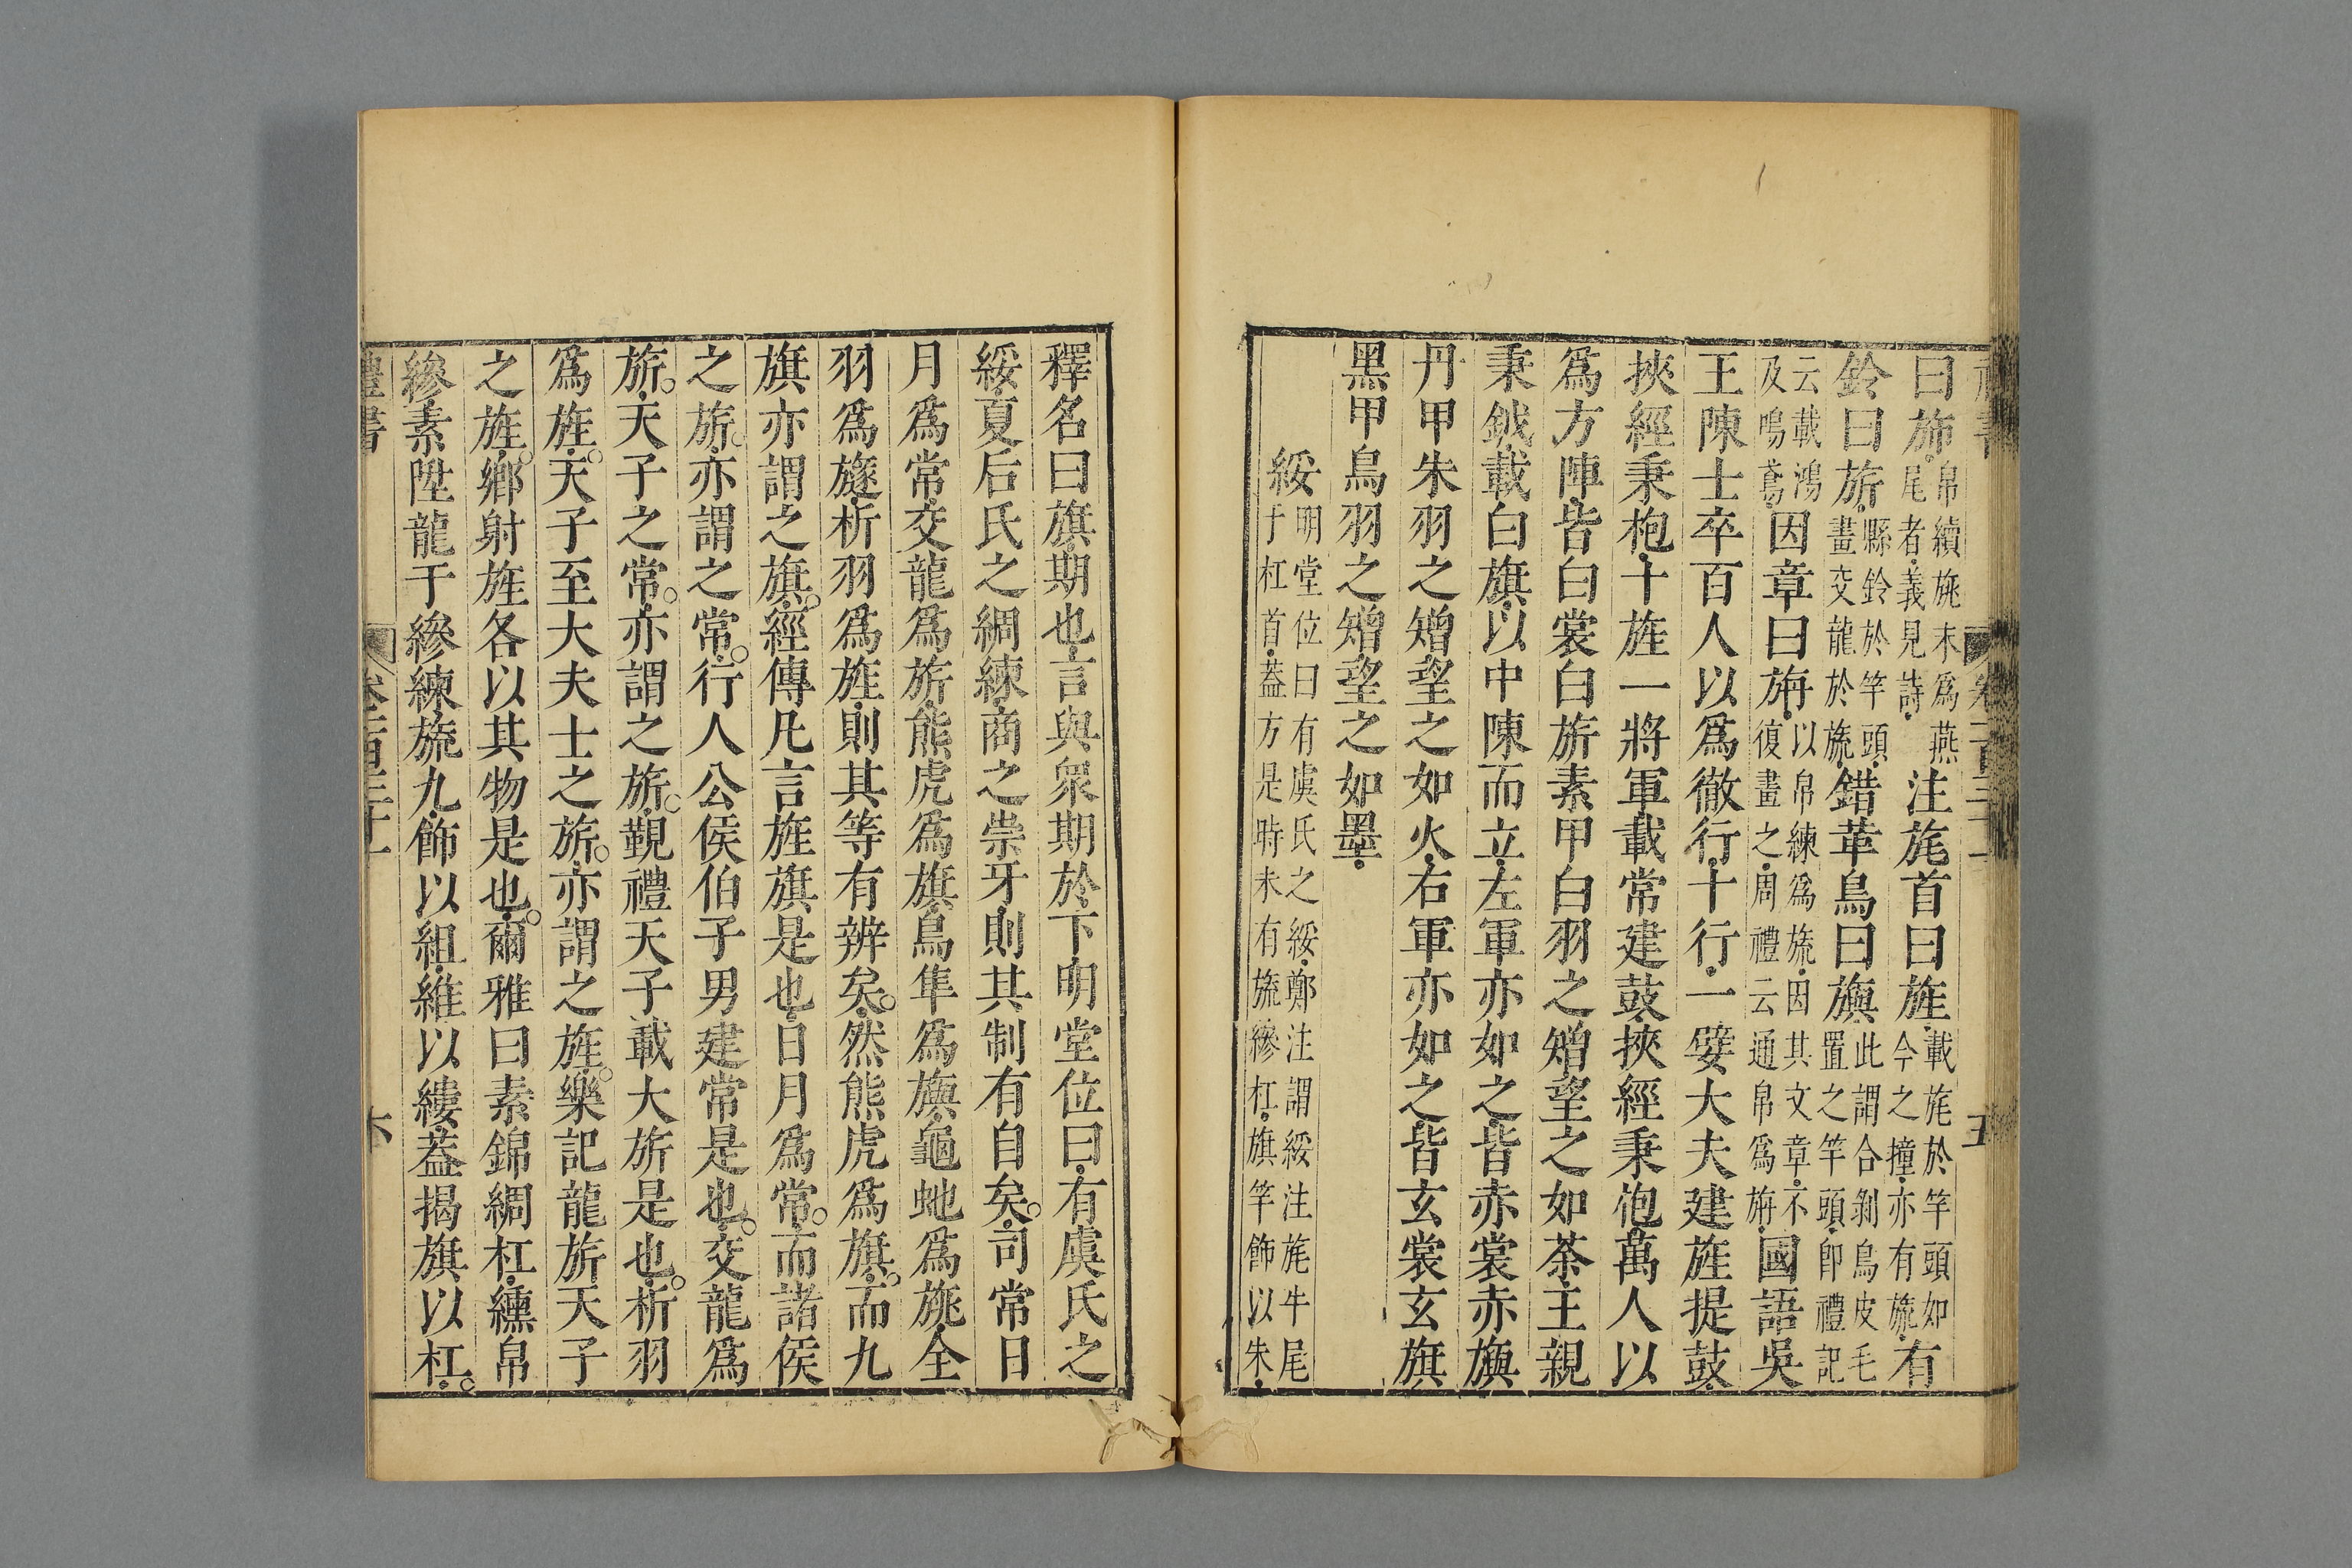 曰斾帛續旐末爲燕尾者義見詩注旄首曰旌載旄於竿頭如今之撞亦有旒有
鈴曰旂縣鈴於竿頭畫交龍於旒錯革鳥曰旟此謂合剝鳥皮毛置之竿頭即禮記
云載鴻及鳴鳶因章曰旃以帛練爲旒因其文章不復畫之周禮云通帛爲旃國語吳
王陳士卒百人以爲徹行十行一嬖大夫建旌提鼓
挾經秉枹十旌一將軍載常建鼓挾經秉枹萬人以
爲方陣皆白裳白旂素甲白羽之矰望之如荼王親
秉鉞載白旗以中陳而立左軍亦如之皆赤裳赤旟
丹甲朱羽之矰望之如火右軍亦如之皆玄裳玄旗
黑甲烏羽之矰望之如墨
綏明堂位曰有虞氏之綏鄭注謂綏注旄牛尾于杠首蓋方是時未有旒縿杠旗竿飾以朱
釋名曰旗期也言與衆期於下明堂位曰有虞氏之
綏夏后氏之綢練商之崇牙則其制有自矣司常日
月爲常交龍爲旂熊虎爲旗鳥隼爲旟龜蛇爲旐全
羽爲旞析羽爲旌則其等有辨矣然熊虎爲旗而九
旗亦謂之旗經傳凡言旌旗是也日月爲常而諸侯
之旂亦謂之常行人公侯伯子男建常是也交龍爲
旂天子之常亦謂之旂覲禮天子載大旂是也析羽
爲旌天子至大夫士之旂亦謂之旌樂記龍旂天子
之旌鄉射旌各以其物是也爾雅曰素錦綢杠纁帛
縿素陞龍于縿練旒九飾以組維以縷蓋揭旗以杠